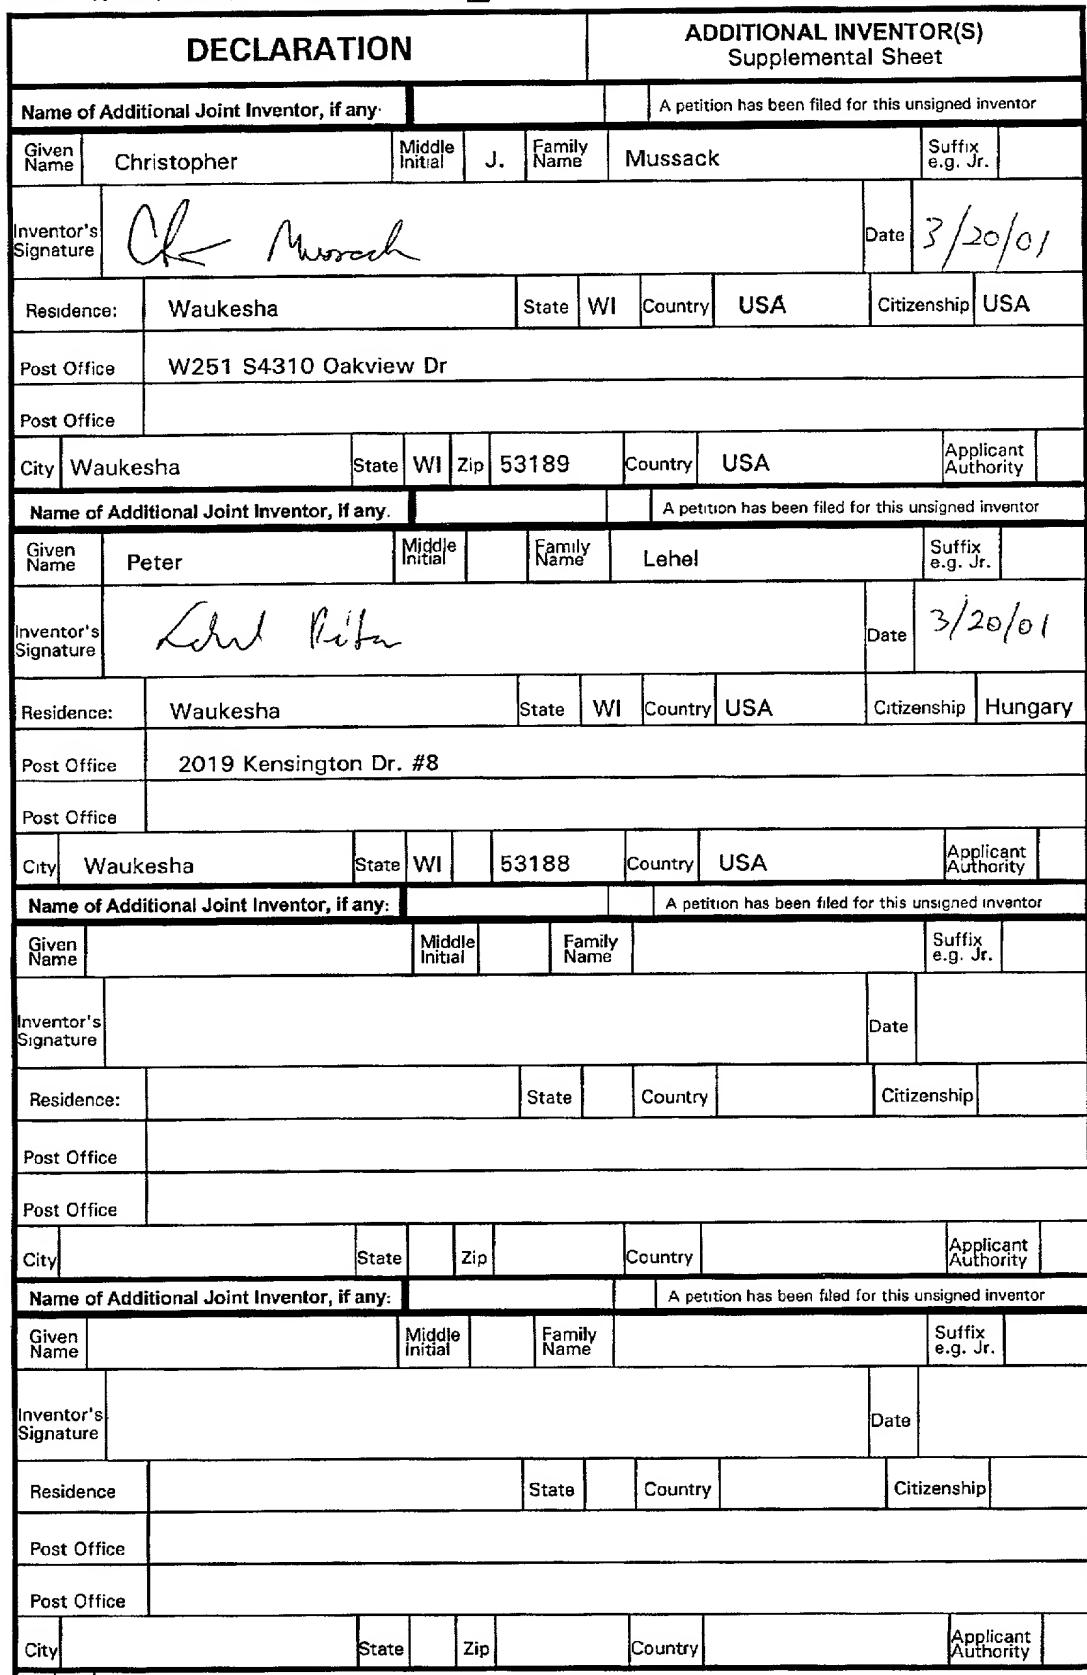 DECLARATION ADDITIONAL INVENTOR(S)
Supplemental Sheet
Name of Additional Joint Inventor, if any: A petition has been filed for this unsigned inventor
Given Name Christopher Middle Initial J. Family Name Mussack Suffix e.g. Jr.
Inventor's Signature Chr Mussack Date 3/20/01
Residence: Waukesha State WI Country USA Citizenship USA
Post Office W251 S4310 Oakview Dr
Post Office
City Waukesha State WI Zip 53189 Country USA Applicant Authority
Name of Additional Joint Inventor, if any. A petition has been filed for this unsigned inventor
Given Name Peter Middle Initial Family Name Lehel Suffix e.g. Jr.
Inventor's Signature Lehel Péter Date 3/20/01
Residence: Waukesha State WI Country USA Citizenship Hungary
Post Office 2019 Kensington Dr. #8
Post Office
City Waukesha State WI 53188 Country USA Applicant Authority
Name of Additional Joint Inventor, if any: A petition has been filed for this unsigned inventor
Given Name Middle Initial Family Name Suffix e.g. Jr.
Inventor's Signature Date
Residence: State Country Citizenship
Post Office
Post Office
City State Zip Country Applicant Authority
Name of Additional Joint Inventor, if any: A petition has been filed for this unsigned inventor
Given Name Middle Initial Family Name Suffix e.g. Jr.
Inventor's Signature Date
Residence State Country Citizenship
Post Office
Post Office
City State Zip Country Applicant Authority